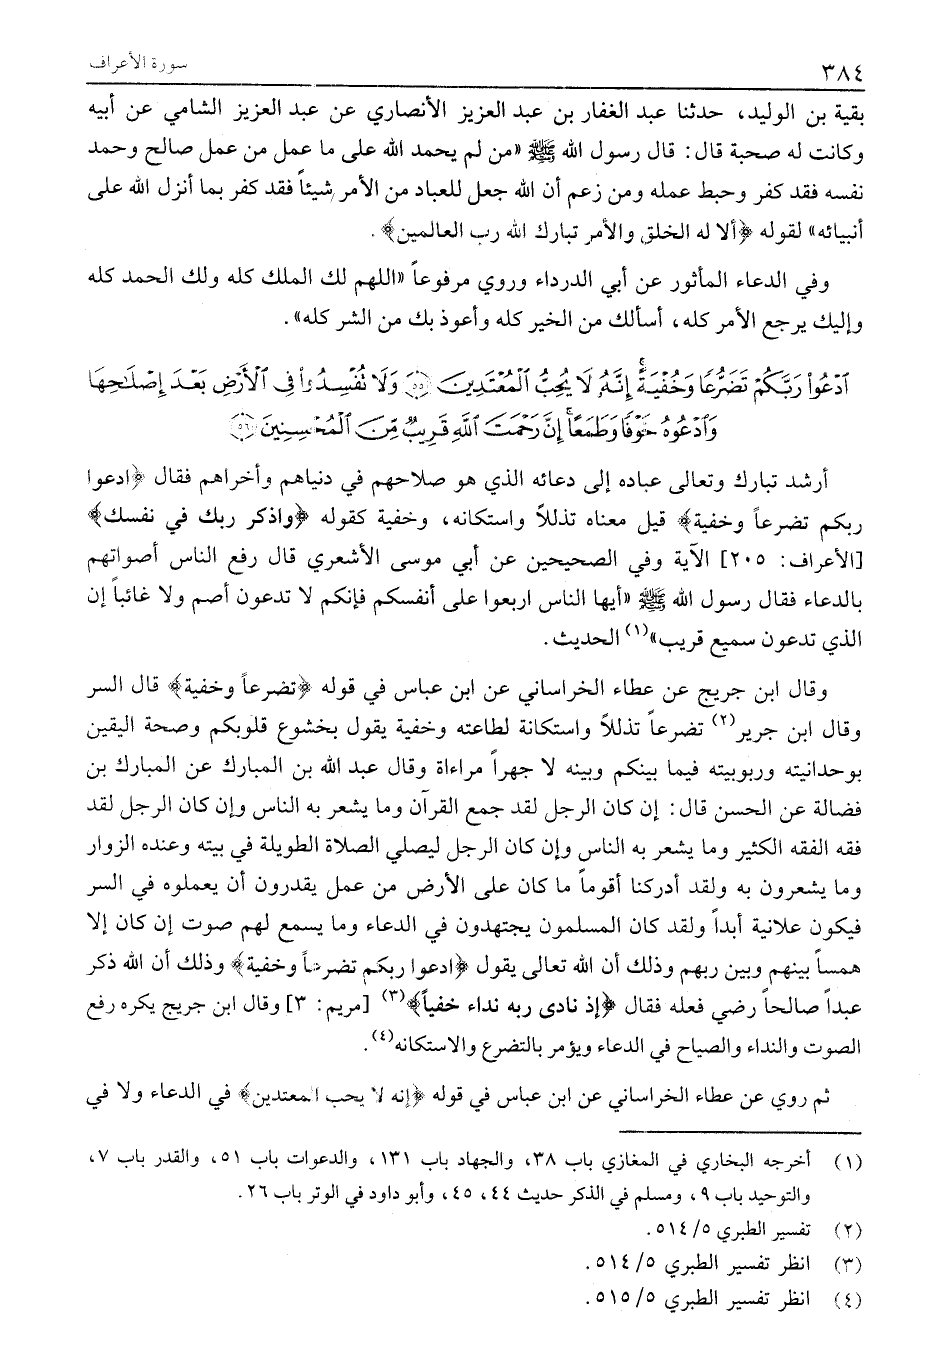 ٣٨٤
سورة الأعراف
بقية بن الوليد، حدثنا عبد الغفار بن عبد العزيز الأنصاري عن عبد العزيز الشامي عن أبيه
وكانت له صحبة قال: قال رسول الله ﷺ «من لم يحمد الله على ما عمل من عمل صالح وحمد
نفسه فقد كفر وحبط عمله ومن زعم أن الله جعل للعباد من الأمر شيئاً فقد كفر بما أنزل الله على
أنبيائه» لقوله ﴿ألا له الخلق والأمر تبارك الله رب العالمين﴾.
وفي الدعاء المأثور عن أبي الدرداء وروي مرفوعاً «اللهم لك الملك كله ولك الحمد كله
وإليك يرجع الأمر كله، أسألك من الخير كله وأعوذ بك من الشر كله».
ٱدْعُوا۟ رَبَّكُمْ تَضَرُّعًا وَخُفْيَةً ۚ إِنَّهُۥ لَا يُحِبُّ ٱلْمُعْتَدِينَ ﴿٥٥﴾ وَلَا تُفْسِدُوا۟ فِى ٱلْأَرْضِ بَعْدَ إِصْلَٰحِهَا
وَٱدْعُوهُ خَوْفًا وَطَمَعًا ۚ إِنَّ رَحْمَتَ ٱللَّهِ قَرِيبٌ مِّنَ ٱلْمُحْسِنِينَ ﴿٥٦﴾
أرشد تبارك وتعالى عباده إلى دعائه الذي هو صلاحهم في دنياهم وأخراهم فقال ﴿ادعوا
ربكم تضرعاً وخفية﴾ قيل معناه تذللاً واستكانه، وخفية كقوله ﴿واذكر ربك في نفسك﴾
[الأعراف: ٢٠٥] الآية وفي الصحيحين عن أبي موسى الأشعري قال رفع الناس أصواتهم
بالدعاء فقال رسول الله ﷺ «أيها الناس اربعوا على أنفسكم فإنكم لا تدعون أصم ولا غائباً إن
الذي تدعون سميع قريب»(١) الحديث.
وقال ابن جريج عن عطاء الخراساني عن ابن عباس في قوله ﴿تضرعاً وخفية﴾ قال السر
وقال ابن جرير(٢) تضرعاً تذللاً واستكانة لطاعته وخفية يقول بخشوع قلوبكم وصحة اليقين
بوحدانيته وربوبيته فيما بينكم وبينه لا جهراً مراءاة وقال عبد الله بن المبارك عن المبارك بن
فضالة عن الحسن قال: إن كان الرجل لقد جمع القرآن وما يشعر به الناس وإن كان الرجل لقد
فقه الفقه الكثير وما يشعر به الناس وإن كان الرجل ليصلي الصلاة الطويلة في بيته وعنده الزوار
وما يشعرون به ولقد أدركنا أقوماً ما كان على الأرض من عمل يقدرون أن يعملوه في السر
فيكون علانية أبداً ولقد كان المسلمون يجتهدون في الدعاء وما يسمع لهم صوت إن كان إلا
همساً بينهم وبين ربهم وذلك أن الله تعالى يقول ﴿ادعوا ربكم تضرعاً وخفية﴾ وذلك أن الله ذكر
عبداً صالحاً رضي فعله فقال ﴿إذ نادى ربه نداء خفياً﴾(٣) [مريم: ٣] وقال ابن جريج يكره رفع
الصوت والنداء والصياح في الدعاء ويؤمر بالتضرع والاستكانه(٤).
ثم روي عن عطاء الخراساني عن ابن عباس في قوله ﴿إنه لا يحب المعتدين﴾ في الدعاء ولا في
(١) أخرجه البخاري في المغازي باب ٣٨، والجهاد باب ١٣١، والدعوات باب ٥١، والقدر باب ٧،
والتوحيد باب ٩، ومسلم في الذكر حديث ٤٤، ٤٥، وأبو داود في الوتر باب ٢٦.
(٢) تفسير الطبري ٥/ ٥١٤.
(٣) انظر تفسير الطبري ٥/ ٥١٤.
(٤) انظر تفسير الطبري ٥/ ٥١٥.